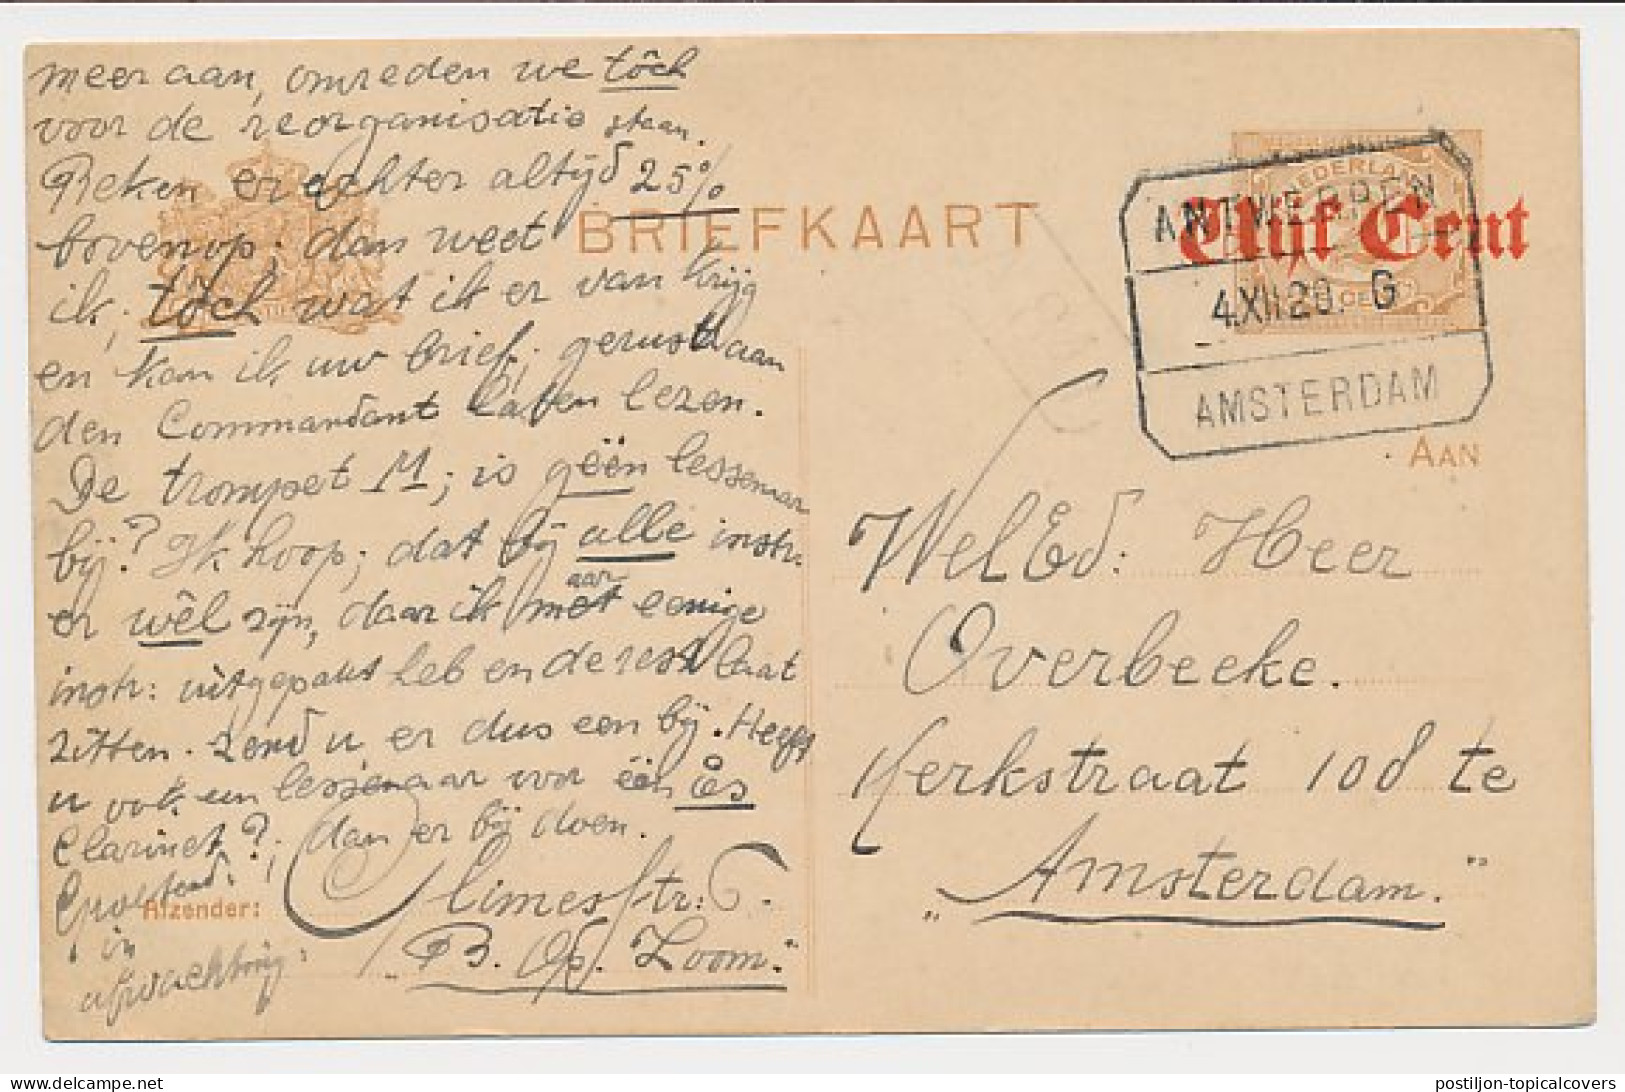 meer aan, omreden we tôch
voor de reorganisatie staan.
Reken er echter altijd 25%
bovenop; dan weet
ik; tôch wat ik er van krijg
en kan ik uw brief; gerust aan
den Commandant laten lezen.
De trompet M; is géén lessenaar
bij? Ik hoop; dat bij alle instr.
er wêl zijn, daar ik maar eenige
instr: uitgepakt heb en de rest laat
zitten. Zend u er dus een bij. Heeft
u ook een lessenaar voor één es
Clarinet?; dan er bij doen.
in
afwachting:
Str: 6.
"B. Op. Zoom."
Afzender:
BRIEFKAART
NEDERLAND
Vijf Cent
ANTWERPEN
4.XII.20. G
AMSTERDAM
AAN
WelEd: Heer
Overbeeke.
Kerkstraat 108 te
"Amsterdam."
postiljon-topicalcovers
delcampe.net